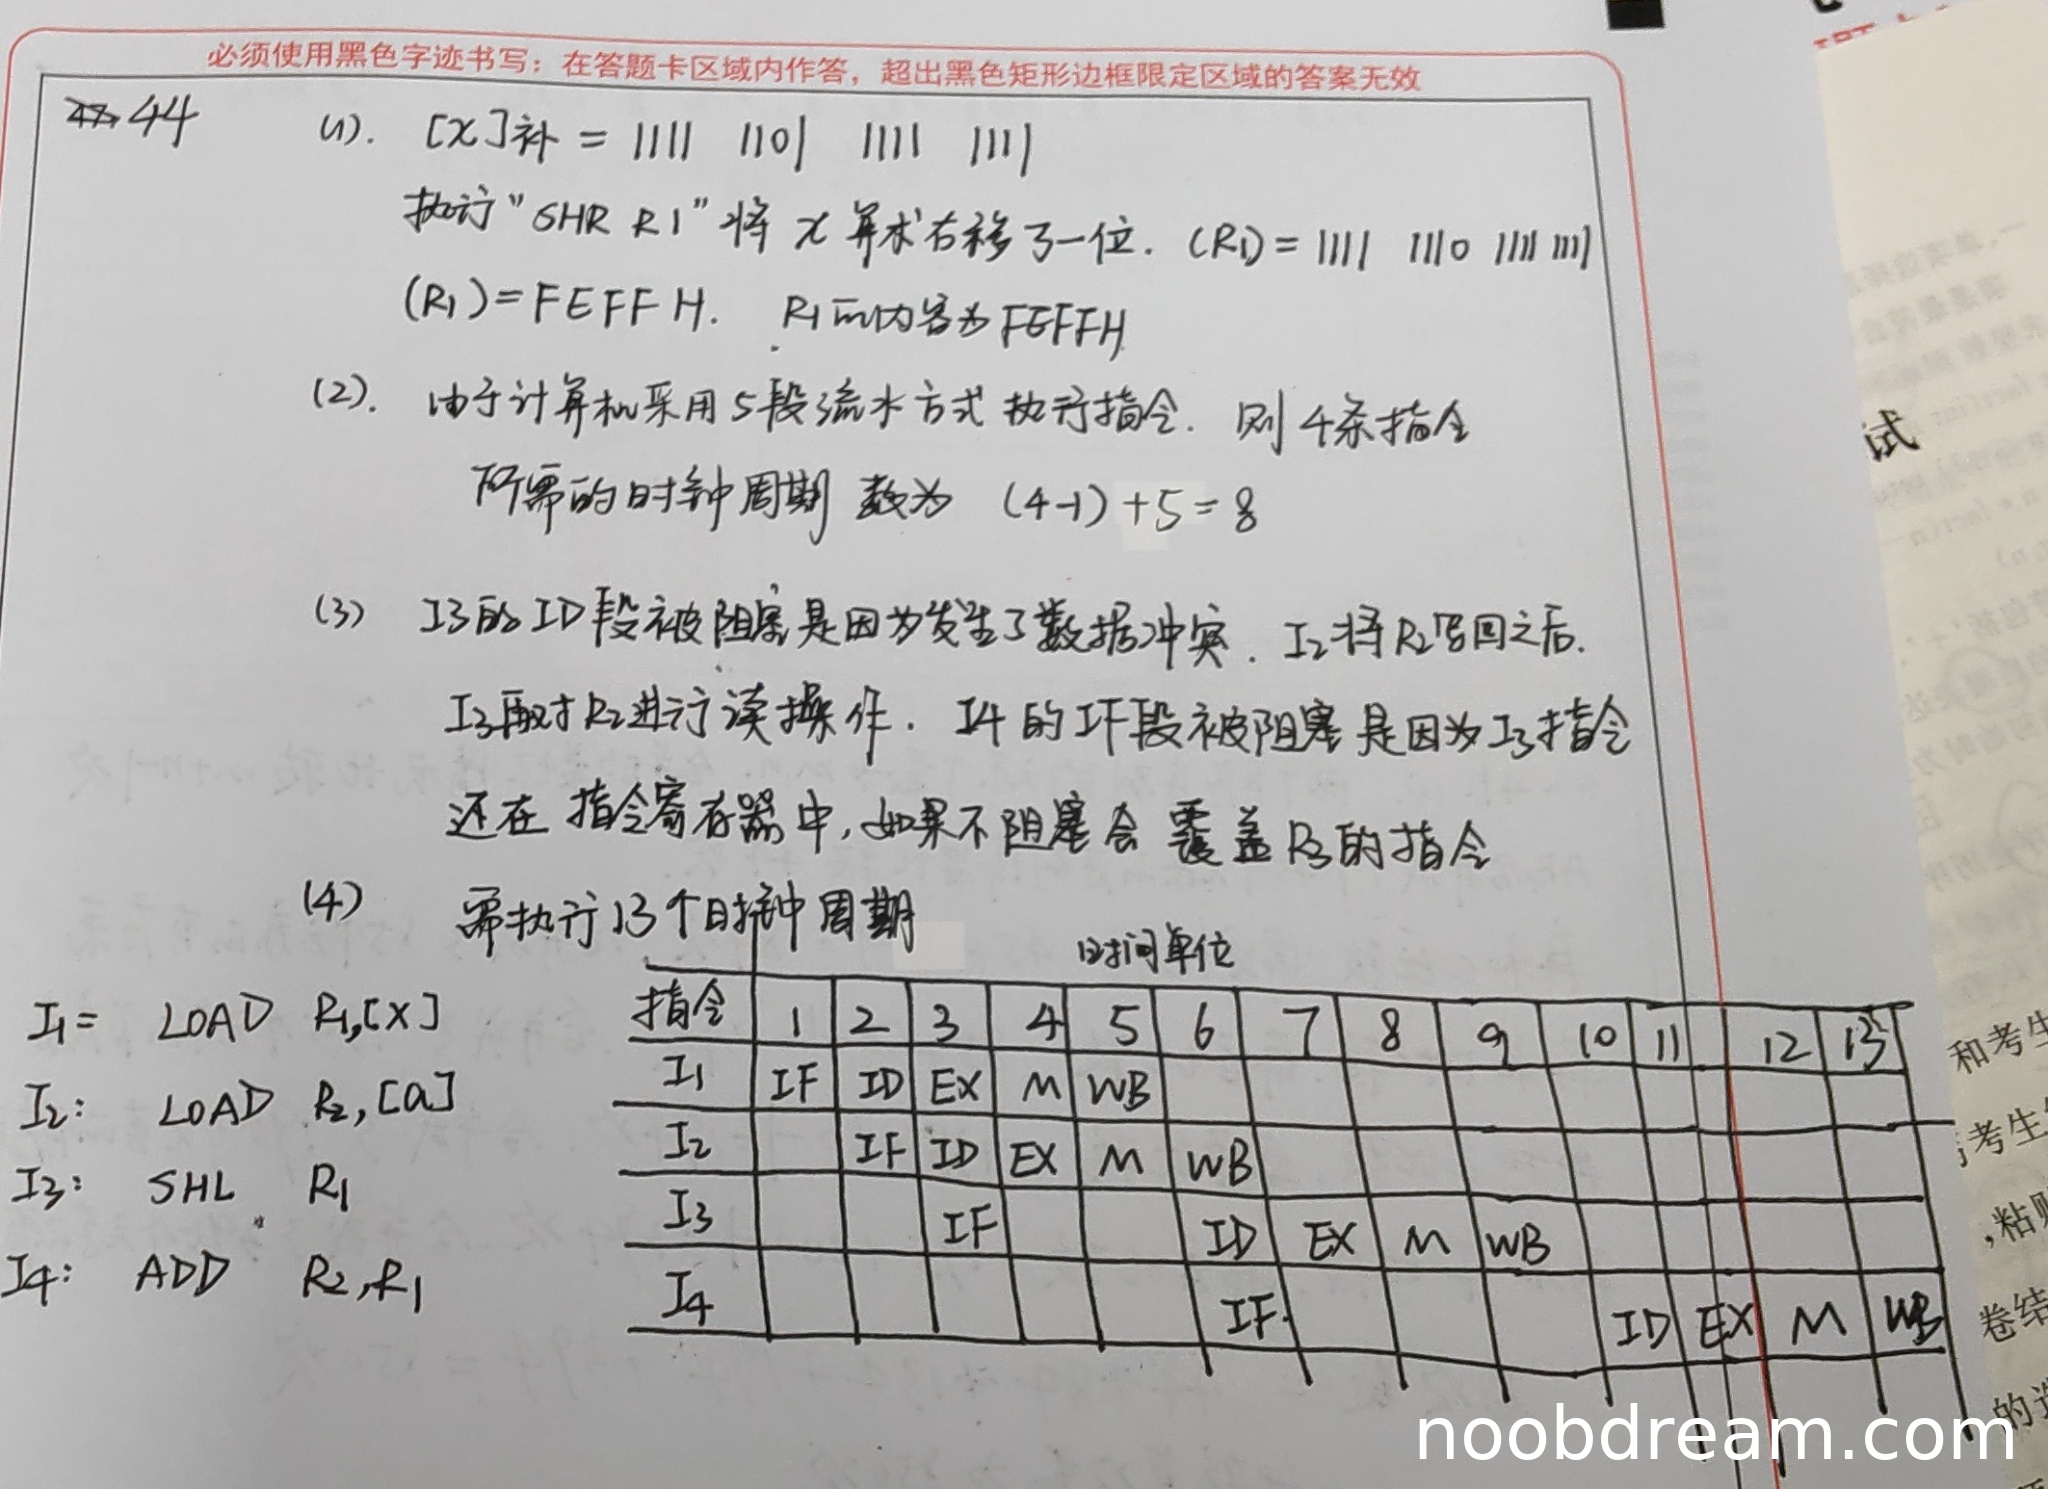 必须使用黑色字迹书写；在答题卡区域内作答，超出黑色矩形边框限定区域的答案无效
44
(1). [x]补 = 1111 1101 1111 1111
执行"SHR R1"将 x 算术右移了一位. (R1) = 1111 1110 1111 1111
(R1) = FEFFH. R1的内容为FEFFH
(2). 由于计算机采用5段流水方式执行指令. 则4条指令
所需的时钟周期数为 (4-1)+5=8
(3) I3的ID段被阻塞是因为发生了数据冲突. I2将R2写回之后.
I3再对R2进行读操作. I4的IF段被阻塞是因为I3指令
还在指令寄存器中,如果不阻塞会覆盖R3的指令
(4) 需执行13个时钟周期
时间单位
I1= LOAD R1,[X]
I2: LOAD R2,[a]
I3: SHL R1
I4: ADD R2,R1
指令 1 2 3 4 5 6 7 8 9 10 11 12 13
I1 IF ID EX M WB
I2 IF ID EX M WB
I3 IF ID EX M WB
I4 IF. ID EX M WB
试
和考生
考生
,粘贴
卷结
的选
noobdream.com